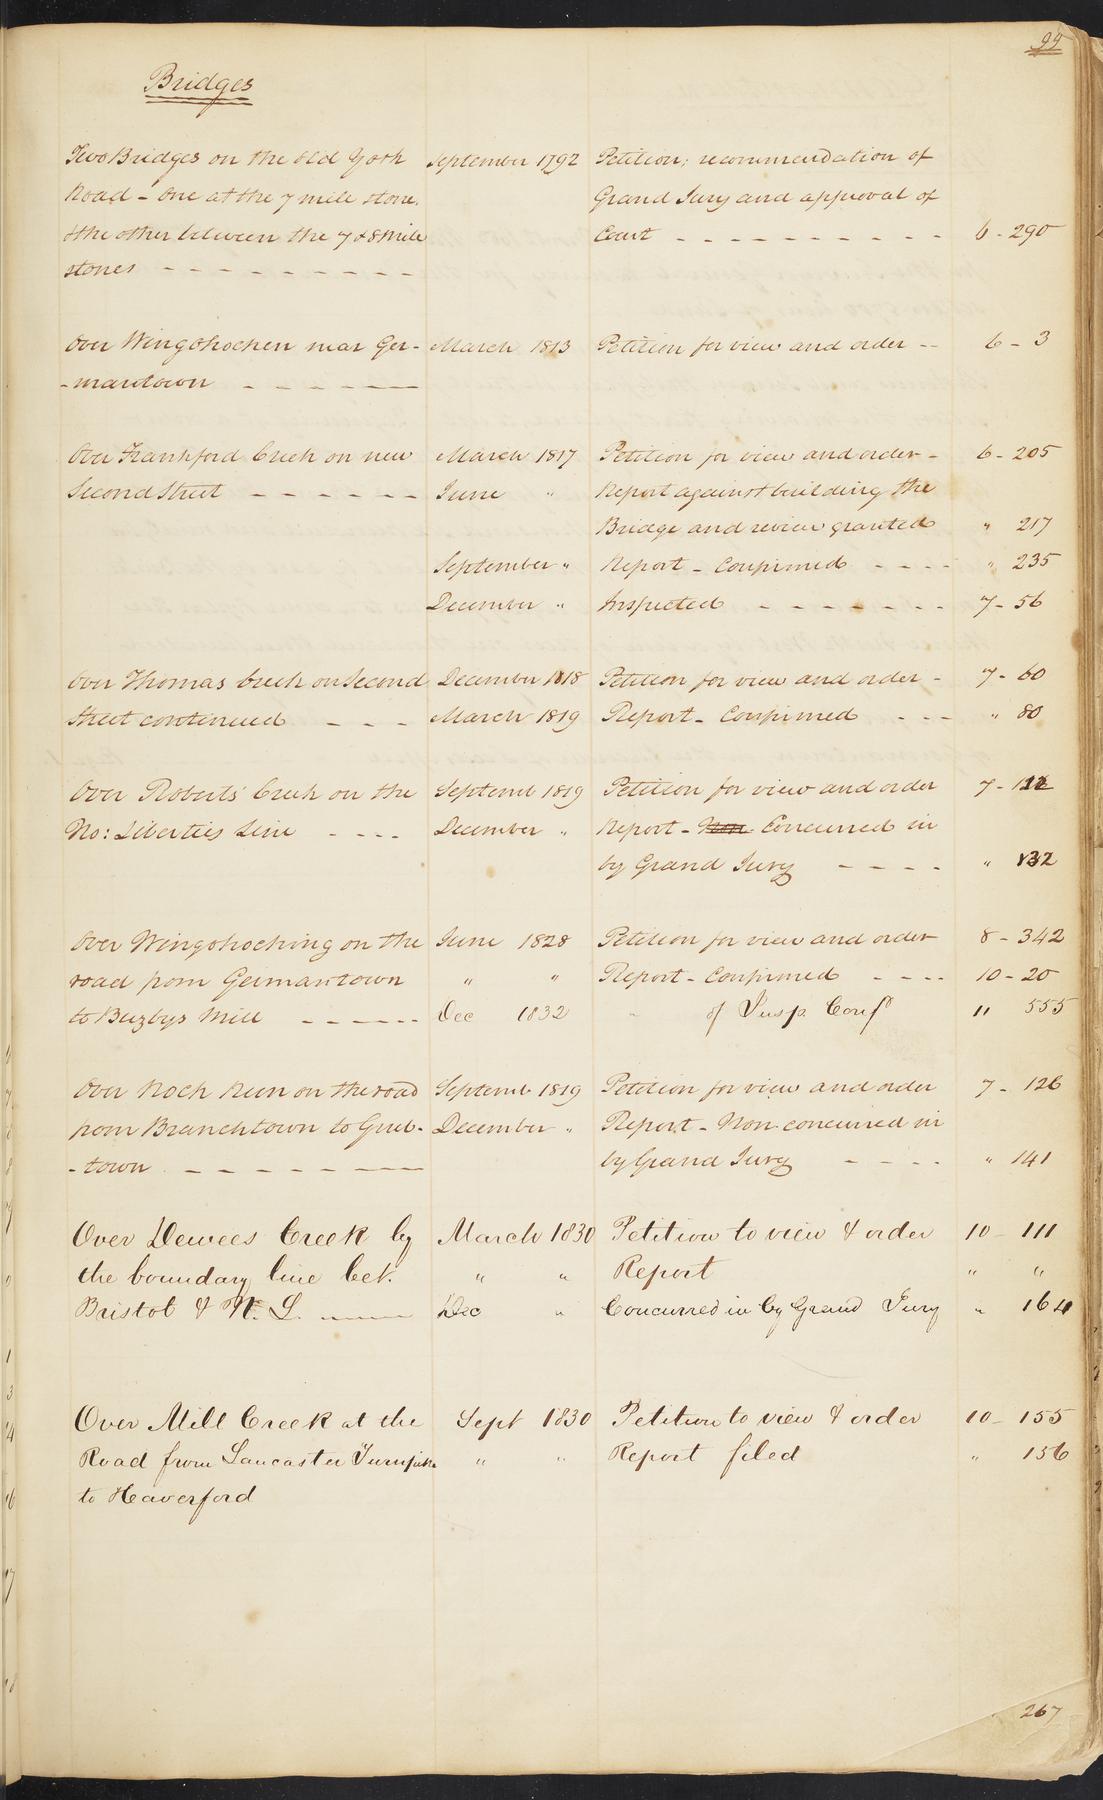 99
Bridges
Two Bridges on the old York September 1792 Petition; recommendation of
Road - One at the 7 mile stone. Grand Jury and approval of
& the other between the 7 & 8 Mile Court - - - - - - - - - - 6 - 290
stones - - - - - - - - - -
Over Wingohocken near Ger- March 1813 Petition for view and order -- 6 - 3
-mantown - - - - - - -
Over Frankford Creek on new March 1817 Petition for view and order - 6 - 205
Second Street - - - - - - June " Report against building the
Bridge and review granted " 217
September " Report - Confirmed - - - - " 235
December " Inspected - - - - - - - 7 - 56
Over Thomas Creek on Second December 1818 Petition for view and order - 7 - 60
Street continued - - - March 1819 Report - Confirmed - - - " 80
Over Roberts' Creek on the Septemb 1819 Petition for view and order 7 -
No: Liberties Line - - - - December " Report - Non Concurred in
by Grand Jury - - - - " 132
Over Wingohocking on the June 1828 Petition for view and order 8 - 342
road from Germantown " " Report - Confirmed - - - - 10 - 20
to Buzbys Mill - - - - - - Dec 1832 " of Insp. Conf^d 11 555
Over Rock Run on the road Septemb 1819 Petition for view and order 7 - 126
from Branchtown to Grub- December " Report - Non-concurred in
-town - - - - - - - by Grand Jury - - - - " 141
Over Dewees Creek by March 1830 Petition to view & order 10 - 111
the boundary line bet. " " Report " "
Bristol & N. L. ------ Dec " Concurred in by Grand Jury " 164
Over Mill Creek at the Sept 1830 Petition to view & order 10 - 155
Road from Lancaster Turnpike " " Report filed " 156
to Haverford
267